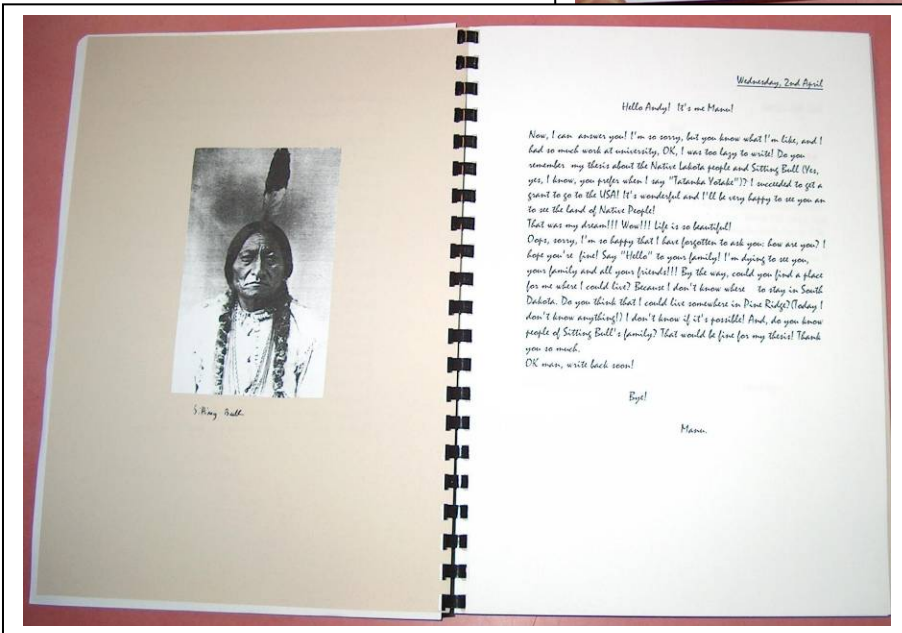 Sitting Bull
Wednesday, 2nd April
Hello Andy! It's me Manu!
Now, I can answer you! I'm so sorry, but you know what I'm like, and I
had so much work at university, OK, I was too lazy to write! Do you
remember my thesis about the Native Lakota people and Sitting Bull (Yes,
yes, I know, you prefer when I say "Tatanka Yotake")? I succeeded to get a
grant to go to the USA! It's wonderful and I'll be very happy to see you an
to see the land of Native People!
That was my dream!!! Wow!!! Life is so beautiful!
Oops, sorry, I'm so happy that I have forgotten to ask you: how are you? I
hope you're fine! Say "Hello" to your family! I'm dying to see you,
your family and all your friends!!! By the way, could you find a place
for me where I could live? Because I don't know where to stay in South
Dakota. Do you think that I could live somewhere in Pine Ridge?(Today I
don't know anything!) I don't know if it's possible! And, do you know
people of Sitting Bull's family? That would be fine for my thesis! Thank
you so much.
OK man, write back soon!
Bye!
Manu.